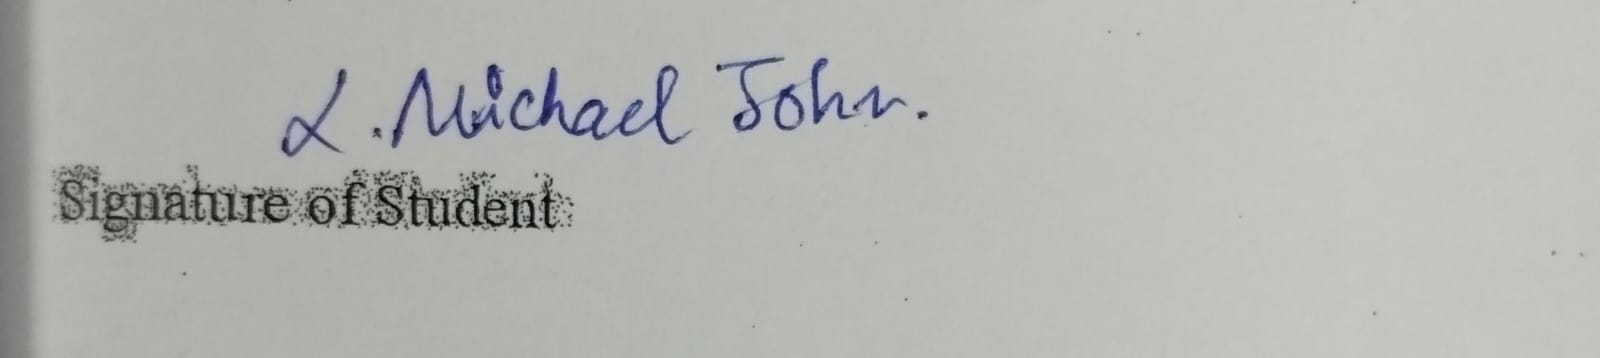 L. Michael John.
Signature of Student